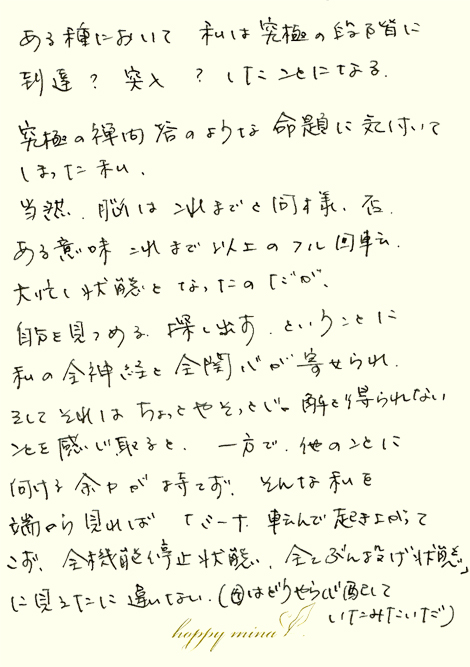 ある種において 私は究極の段階に
到達? 突入 ? したことになる.
究極の禅問答のような 命題に気付いて
しまった私.
当然. 脳は これまでと同様. 否.
ある意味 これまで以上の フル回転.
大忙し状態と なったのだが、
自分を見つめる. 探し出す. ということに
私の全神経と全関心が寄せられ.
そして それは ちょっとやそっとじゃ 解を得られない
ことを感じ取ると. 一方で. 他のことに
向ける余力が持てず. そんな私を
端から見れば 転んで起き上がって
こず. 全機能停止状態. 全てぶん投げ状態」
に見えたに違いない. (母はどうやら心配して
いたみたいだ)
happy mina